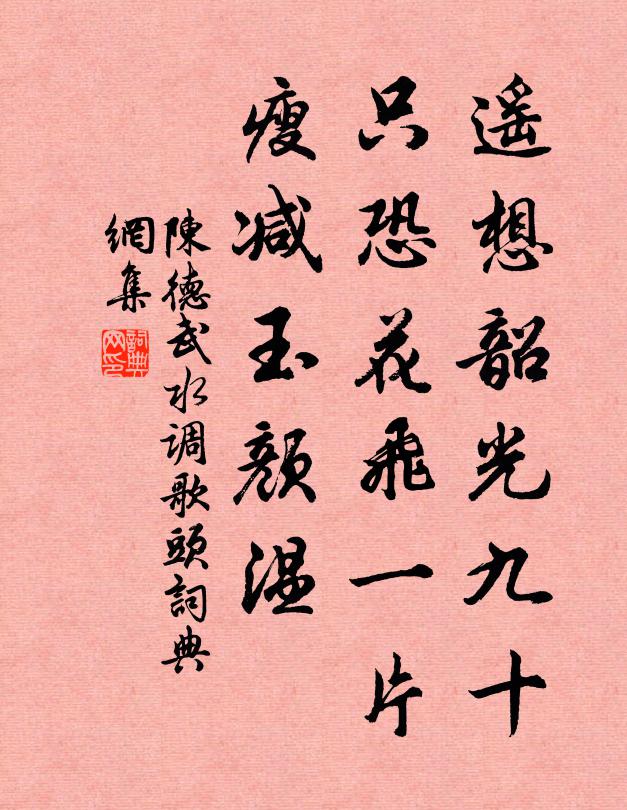 遥想韶光九十
只恐花飛一片
瘦減玉顏温
陳德武水调歌頭詞典
網集
詞典
网印